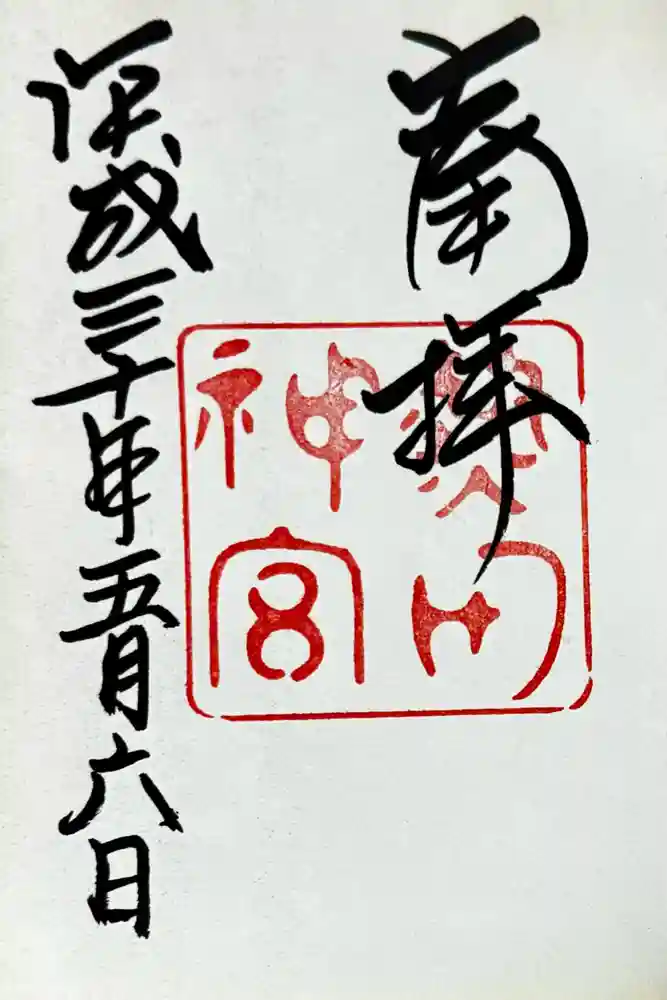 奉拝
神宮
平成三十年五月六日